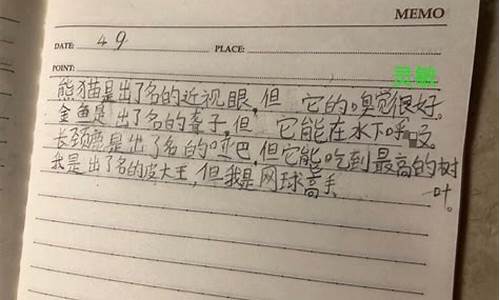 MEMO
DATE: 4 9 PLACE:
POINT: 灵敏
熊猫是出了名的近视眼,但 它的嗅觉很好。
金鱼是出了名的聋子,但 它能在水下呼吸。
长颈鹿是出了名的哑巴,但它能吃到最高的树
叶。
我是出了名的皮大王,但我是网球高手